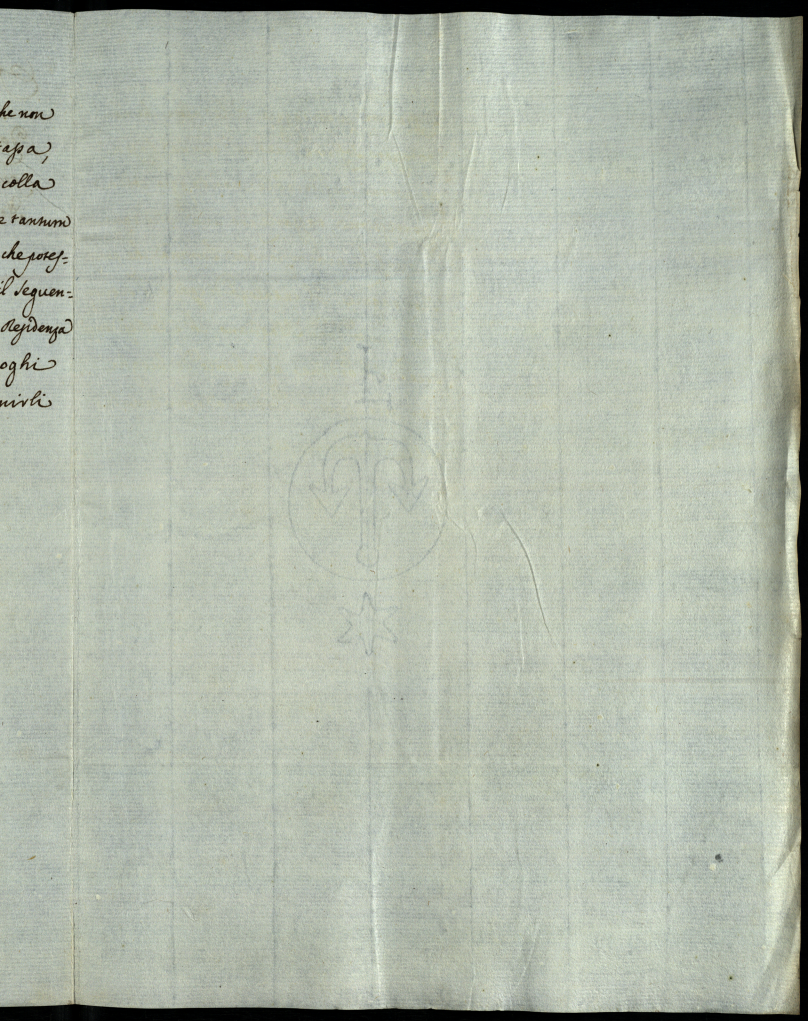 he non
assa,
colla
e tantum
che potes=
il seguen=
Residenza
oghi
nirli